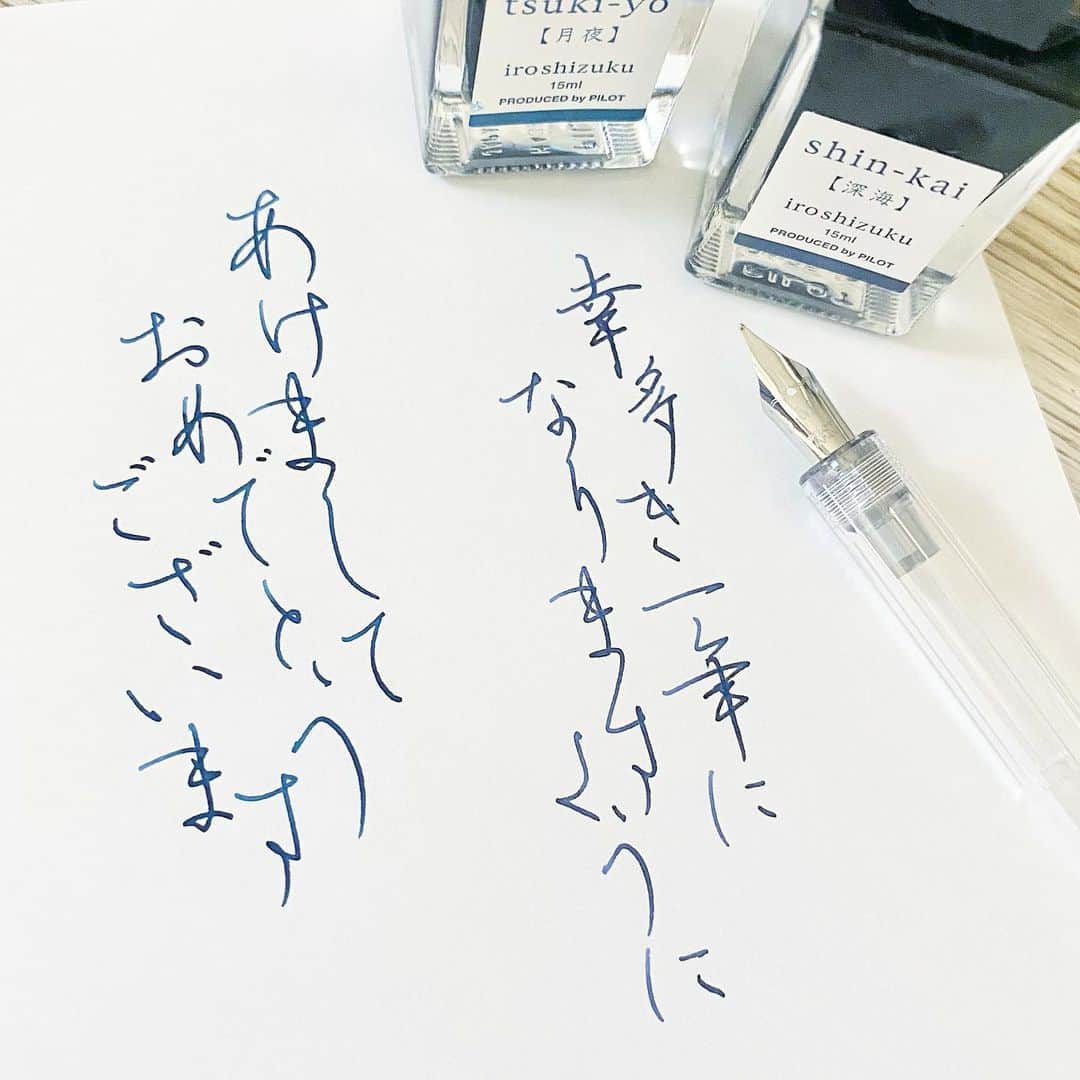 tsuki-yo
【月夜】
iroshizuku
15ml
PRODUCED by PILOT
shin-kai
【深海】
iroshizuku
15ml
PRODUCED by PILOT
幸多き一年に
なりますように
あけまして
おめでとう
ございます